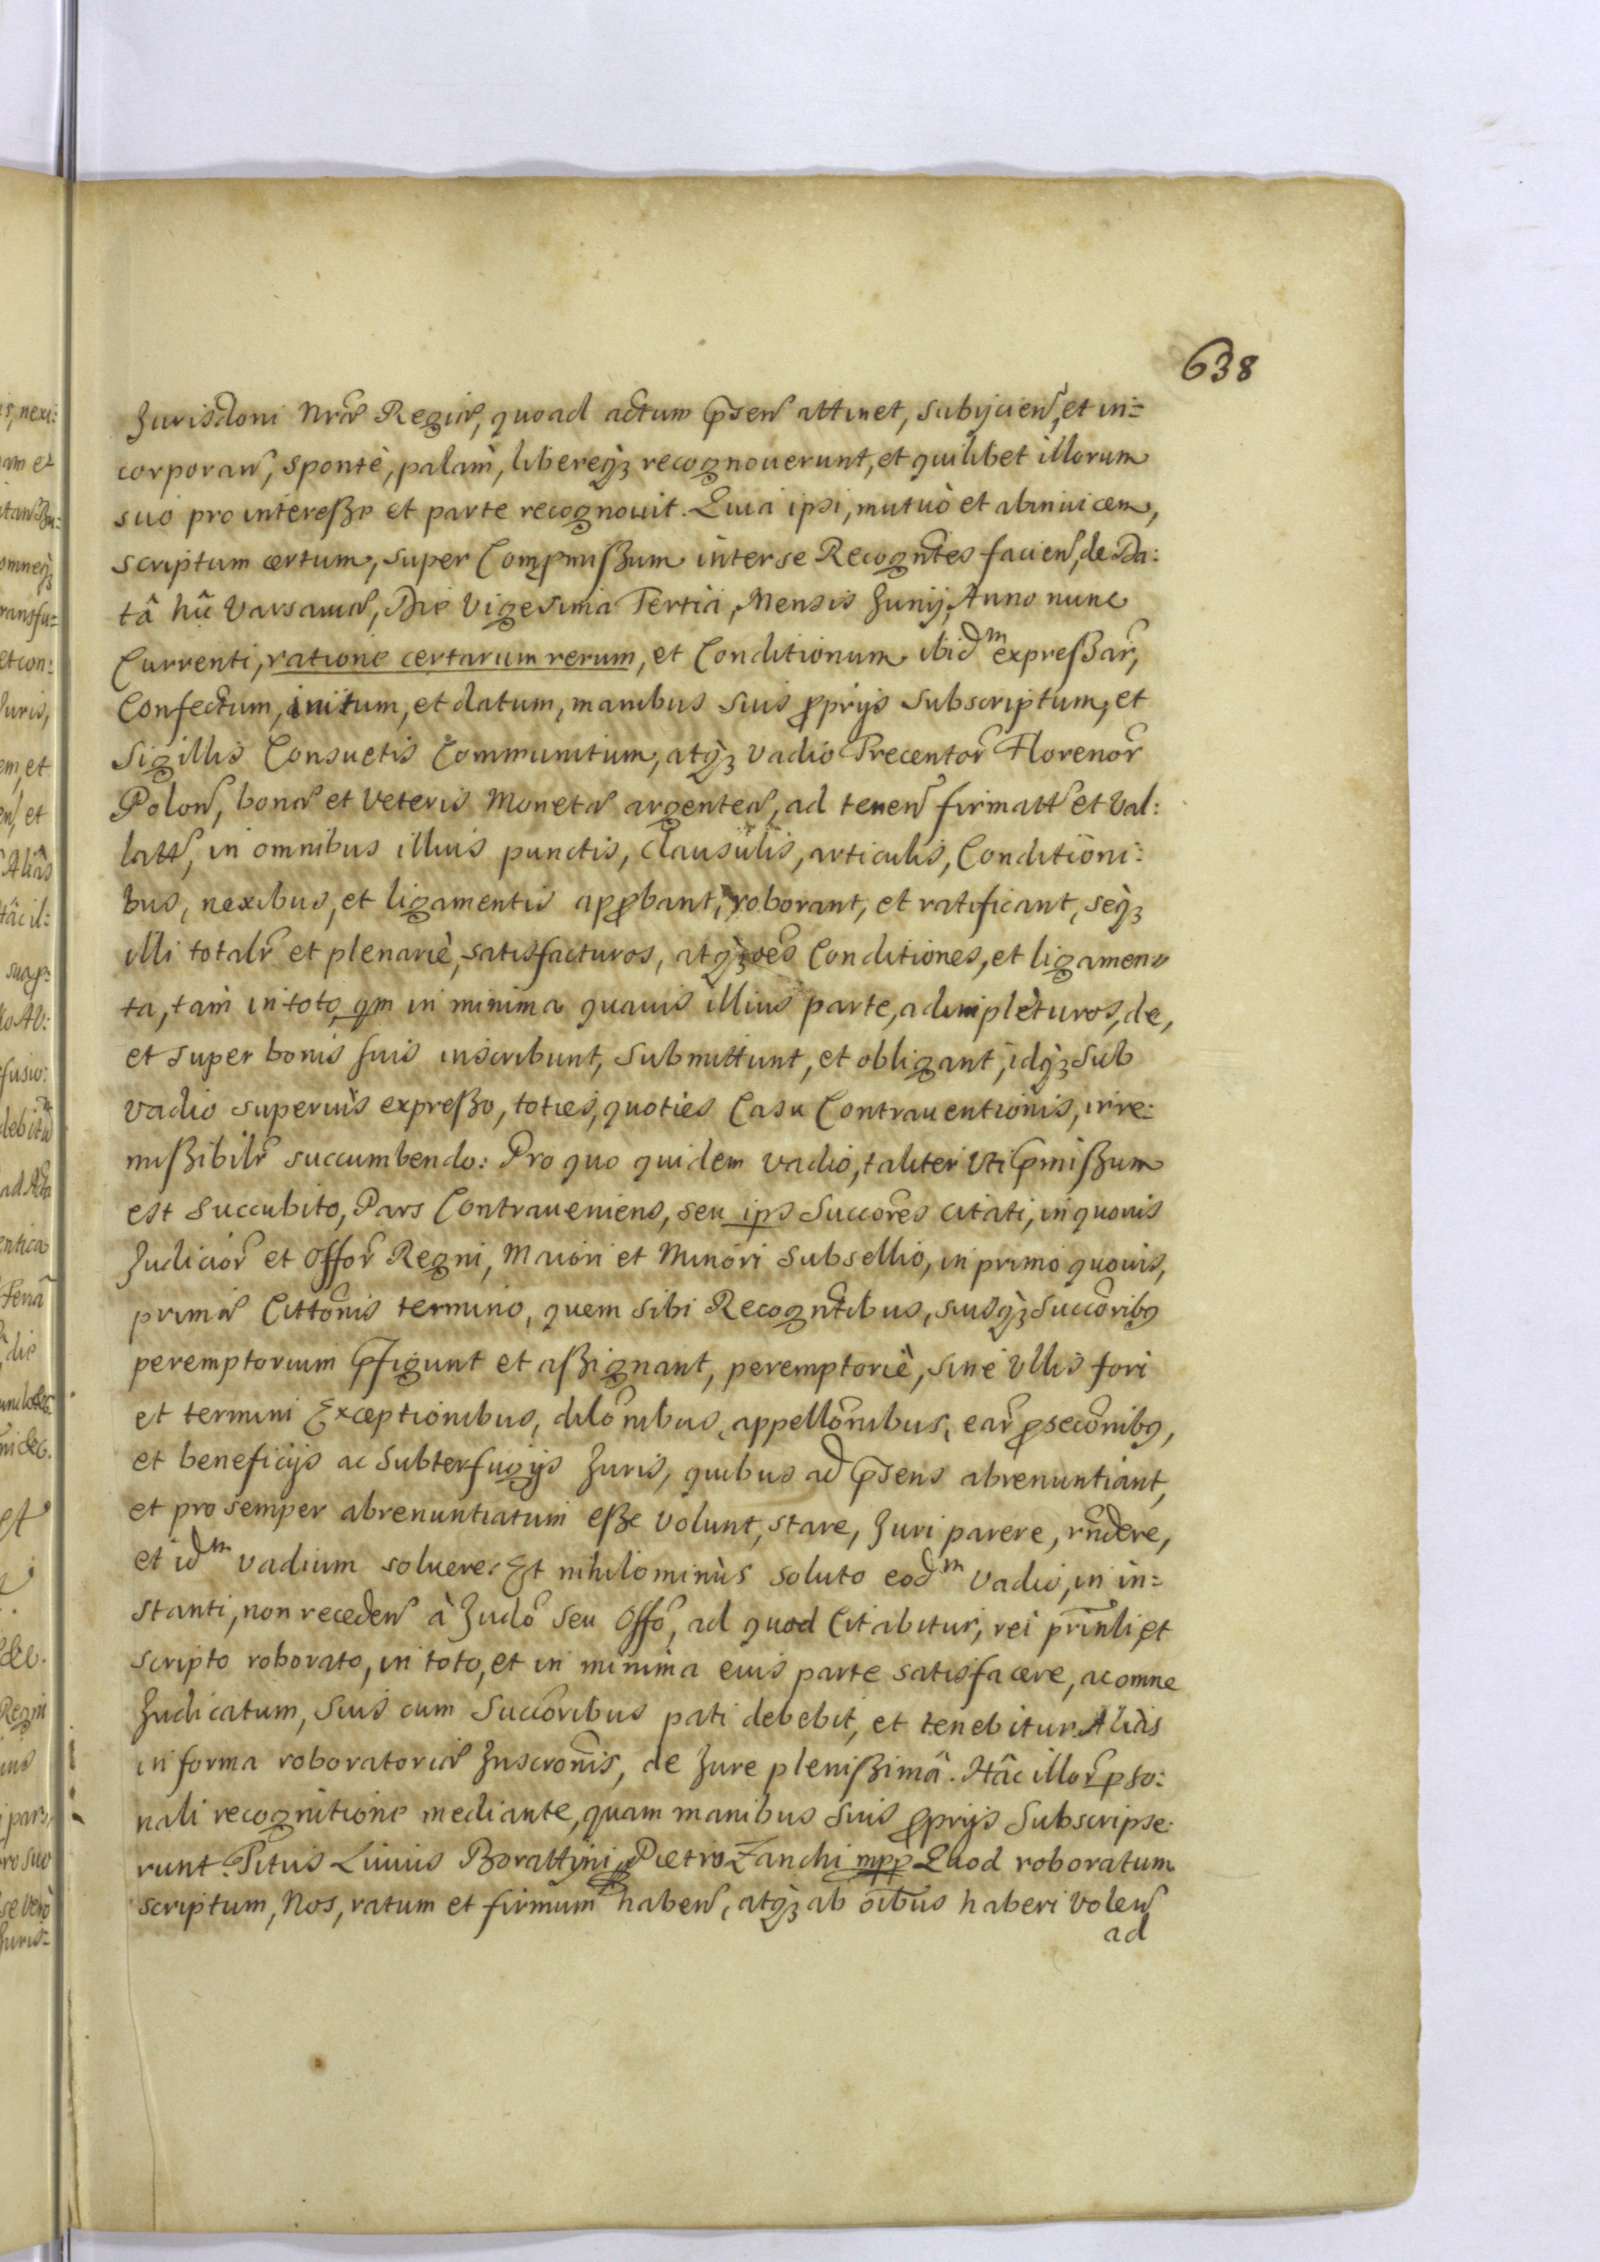 638
Jurisdoni Nrae Regiae, quoad actum pnsen attinet, subijcien, et in=
corporan, sponte, palam, libereq3 recognoverunt, et quilibet illorum
suo pro intereße et parte recognovit. Quia ipsi, mutuò et abinuicem,
scriptum certum, super Compmißum inter se Recogntes facien, de Da:
tâ hîc Varsaviae, Die Vigesima Tertia, Mensis Junij, Anno nunc
Currenti, ratione certarum rerum, et Conditionum ibidm expreßar,
Confectum, initum, et datum, manibus suis proprijs subscriptum, et
Sigillis Consuetis Communitum, atq3 vadio Trecentor Florenor
Polon, bonae et veteris Monetae argenteae, ad tenen firmatt et val:
latt, in omnibus illius punctis, clausulis, articulis, Conditioni:
bus, nexibus, et ligamentis approbant, roborant, et ratificant, seq3
illi totalr et plenariè, satisfacturos, atq3 oes Conditiones, et ligamen
ta, tam in toto, qm in minima quavis illius parte, adimpleturos, de,
et super bonis suis inscribunt, submittunt, et obligant, idq3 sub
vadio superius expreßo, toties, quoties Casu Contraventionis, irre:
mißibilr succumbendo: Pro quo quidem vadio, taliter uti pmißum
est succubito, Pars Contraveniens, seu ips Succores citati, in quovis
Judicior et Offor Regni, Maiori et Minori subsellio, in primo quovis,
primae Cittonis termino, quem sibi Recogntibus, suisq3 Succoribus
peremptorium pfigunt et aßignant, peremptoriè, sine ullis fori
et termini Exceptionibus, dilonibus, appellonibus, ear prosecconibus,
et beneficijs ac subterfugijs Juris, quibus ad psens abrenuntiant,
et pro semper abrenuntiatum eße volunt, stare, Juri parere, rndere,
et idm vadium solvere. Et nihilominùs soluto eodm vadio, in in=
stanti, non receden à Judo seu Offo, ad quod Citabitur, rei prinli et
scripto roborato, in toto, et in minima eius parte satisfacere, ac omne
Judicatum, suis cum Succoribus pati debebit, et tenebitur. Aliàs
in forma roboratoriae Inscronis, de Jure plenißimâ. Hâc illor pso:
nali recognitione mediante, quam manibus suis proprijs subscripse
runt. Titus Livius Borattyni, Pietro Zanchi mpp Quod roboratum
scriptum, Nos, ratum et firmum haben, atq3 ab oibus haberi volen
ad